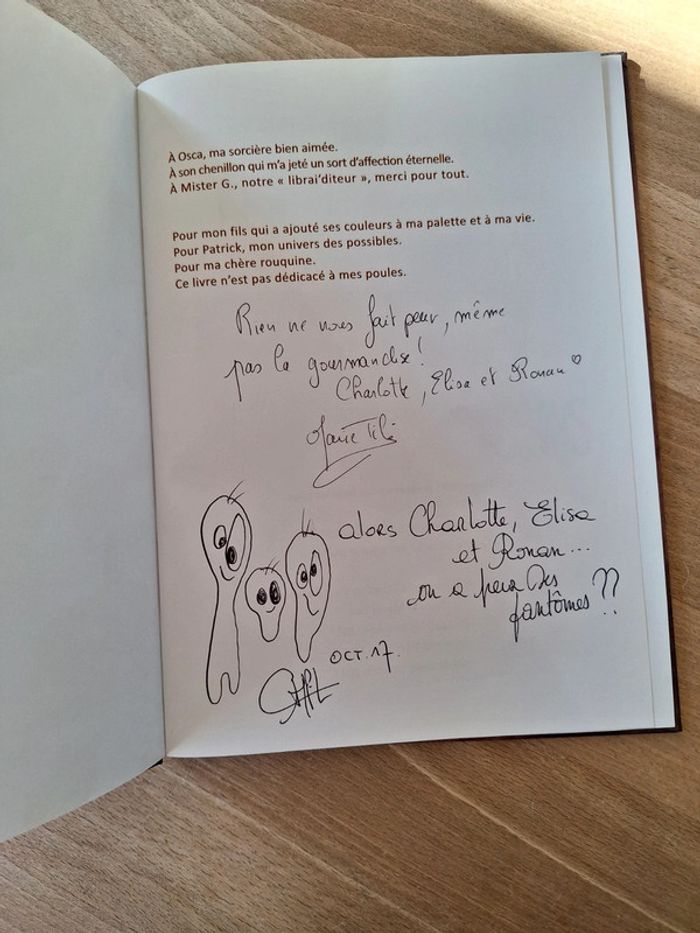 À Osca, ma sorcière bien aimée.
À son chenillon qui m'a jeté un sort d'affection éternelle.
À Mister G., notre « librai'diteur », merci pour tout.
Pour mon fils qui a ajouté ses couleurs à ma palette et à ma vie.
Pour Patrick, mon univers des possibles.
Pour ma chère rouquine.
Ce livre n'est pas dédicacé à mes poules.
Rien ne vous fait peur, même
pas la gourmandise !
Charlotte, Elisa et Ronan ♡
alors Charlotte, Elisa
et Ronan...
on a peur des
fantômes ??
OCT. 17.